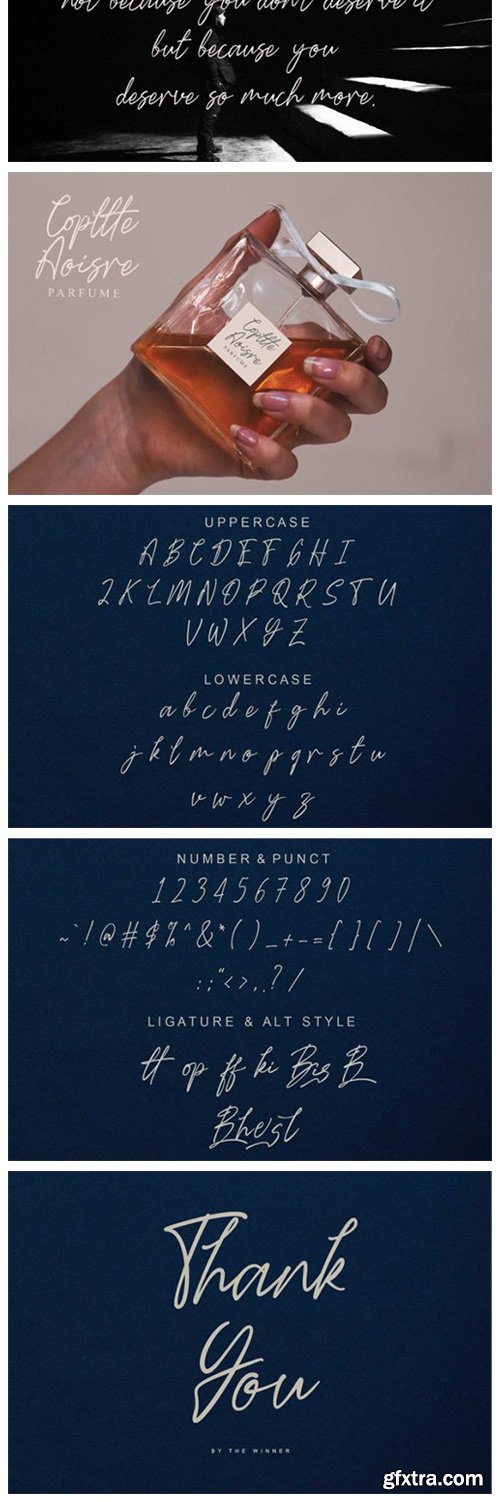 not because you don't deserve it
but because you
deserve so much more.
Copltte
Aoisre
PARFUME
Copltte
Aoisre
PARFUME
UPPERCASE
A B C D E F G H I
J K L M N O P Q R S T U
V W X Y Z
LOWERCASE
a b c d e f g h i
j k l m n o p q r s t u
v w x y z
NUMBER & PUNCT
1 2 3 4 5 6 7 8 9 0
~ ` ! @ # $ % ^ & * ( ) _ + - = { } [ ] | \
: ; " < > , . ? /
LIGATURE & ALT STYLE
tt op ff ki Big B
Bhest
Thank
You
BY THE WINNER
gfxtra.com